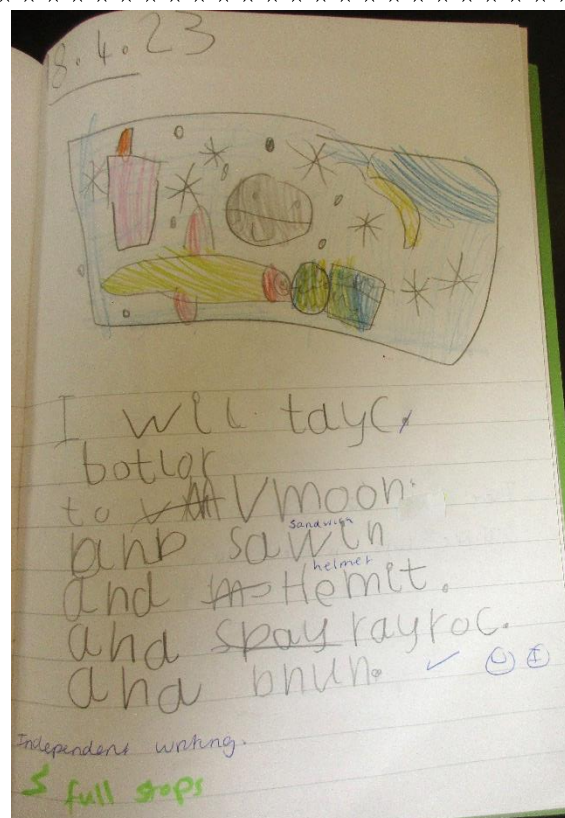 18.4.23
I will tayc
botlor
to Vmoon.
sandwich
and sawin
helmet
and Hemit.
and spay rayroc.
and bnun.
Independent writing.
full stops